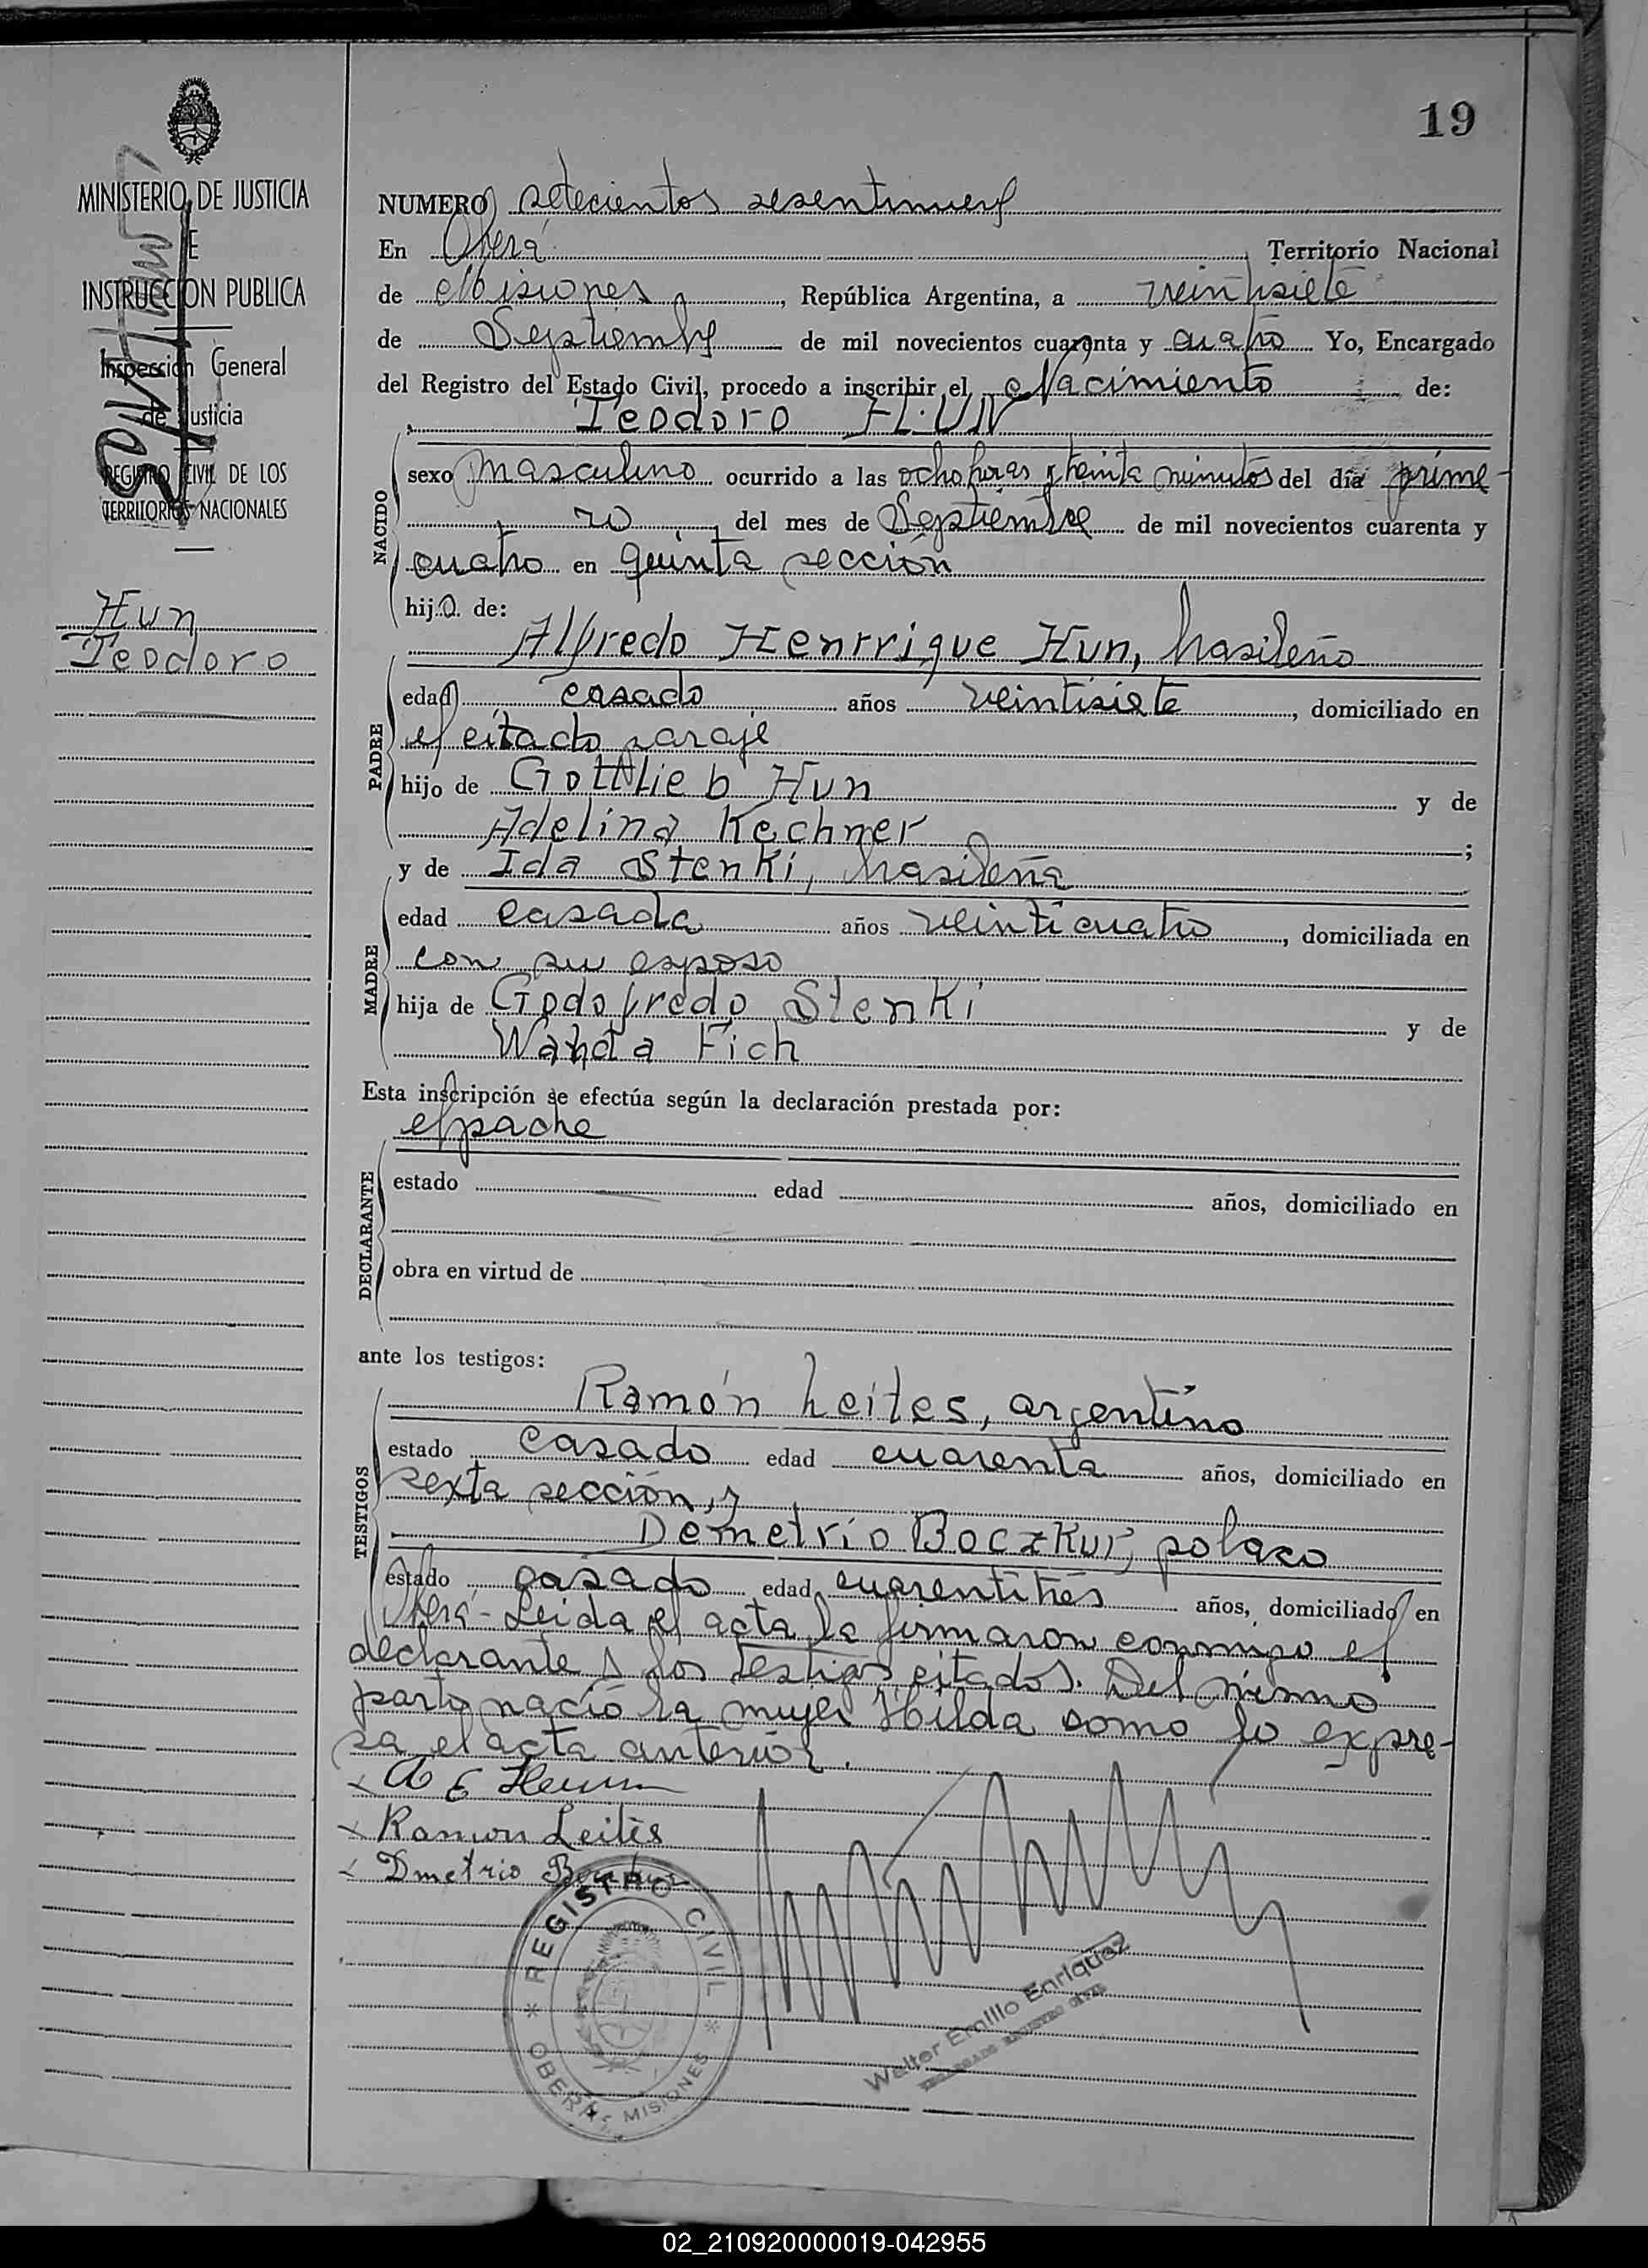 19
MINISTERIO DE JUSTICIA
E
INSTRUCCION PUBLICA
Inspección General
de Justicia
REGISTRO CIVIL DE LOS
TERRITORIOS NACIONALES
Hun
Teodoro
NUMERO setecientos sesentinueve
En Oberá Territorio Nacional
de Misiones, República Argentina, a veintisiete
de Septiembre de mil novecientos cuarenta y cuatro Yo, Encargado
del Registro del Estado Civil, procedo a inscribir el Nacimiento de:
Teodoro HUN
NACIDO
sexo masculino ocurrido a las ocho horas y treinta minutos del día prime-
ro del mes de Septiembre de mil novecientos cuarenta y
cuatro en quinta sección
hijo de:
Alfredo Henrrique Hun, brasileño
PADRE
edad casado años veintisiete, domiciliado en
el citado paraje
hijo de Gottlieb Hun y de
Adelina Kechner;
y de Ida Stenki, brasileña
MADRE
edad casada años veinticuatro, domiciliada en
con su esposo
hija de Godofredo Stenki y de
Wanda Fich
Esta inscripción se efectúa según la declaración prestada por:
el padre
DECLARANTE
estado edad años, domiciliado en
obra en virtud de
ante los testigos:
TESTIGOS
Ramón Leites, argentino
estado casado edad cuarenta años, domiciliado en
sexta sección, y
Demetrio Boczkur, polaco
estado casado edad cuarentitrés años, domiciliado en
Oberá - Leida el acta la firmaron conmigo el
declarante y los testigos citados. Del mismo
parto nació la mujer Hilda como lo expre-
sa el acta anterior.
A E Heunn
Ramon Leites
Dmetrio
REGISTRO CIVIL
* OBERÁ, MISIONES *
Walter Emilio Enriquez
ENCARGADO REGISTRO CIVIL
02_210920000019-042955